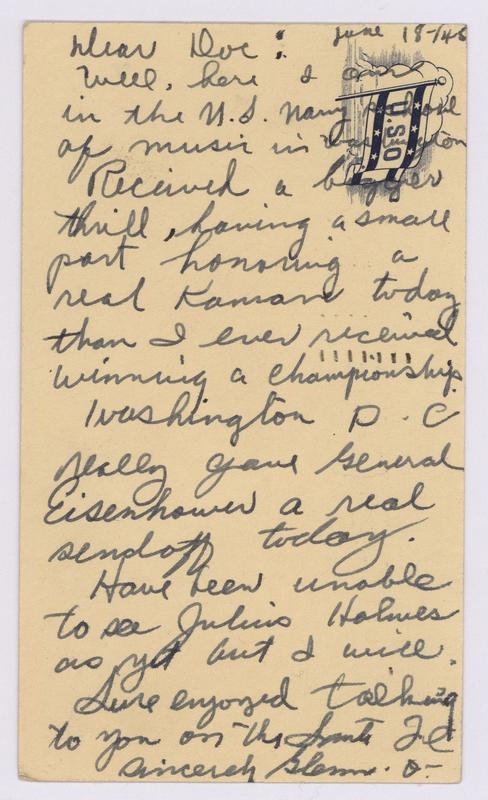 Dear Doc: June 18-/45
Well, here I am
in the U.S. Navy School
of music in Washington
USO
Received a bigger
thrill, having a small
part honoring a
real Kansan today
than I ever received
winning a championship.
Washington D.C
really gave General
Eisenhower a real
sendoff today.
Have been unable
to see Julius Holmes
as yet but I will.
Sure enjoyed talking
to you on the Santa Fe
Sincerely Glenn. O-